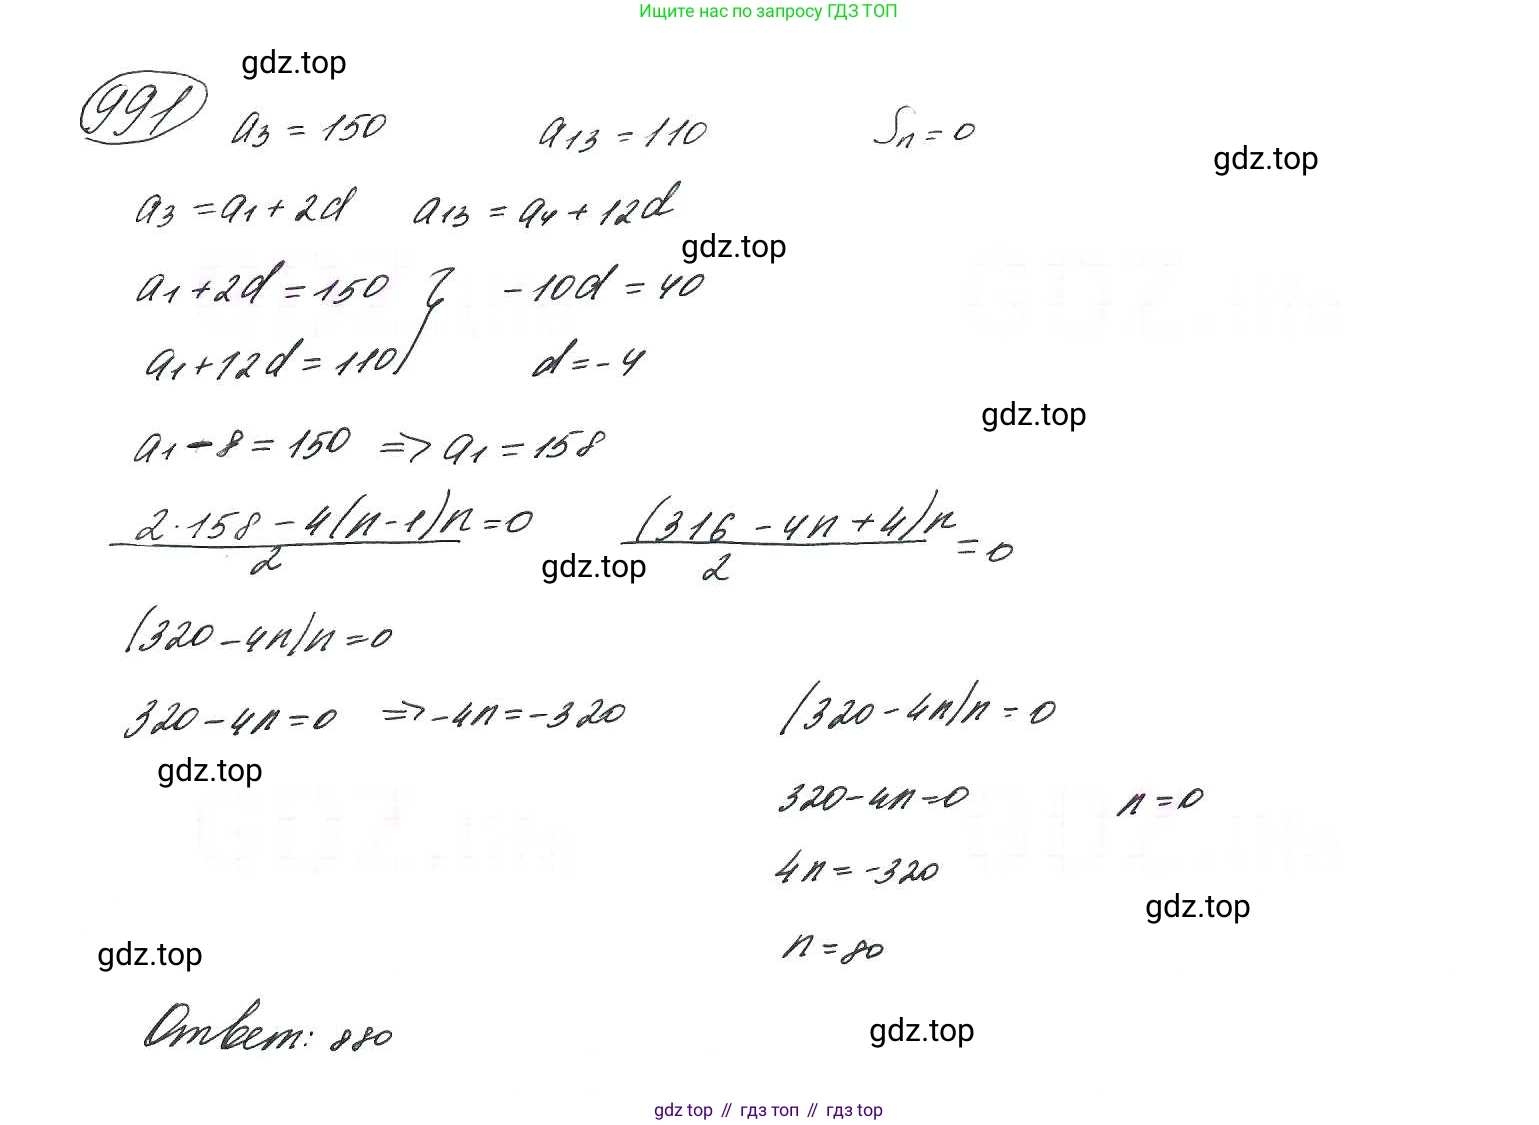 Ищите нас по запросу ГДЗ ТОП
gdz.top
991 a₃ = 150 a₁₃ = 110 Sₙ = 0
gdz.top
a₃ = a₁ + 2d a₁₃ = a₄ + 12d
gdz.top
a₁ + 2d = 150 } - 10d = 40
a₁ + 12d = 110 d = - 4
gdz.top
a₁ - 8 = 150 => a₁ = 158
2·158 - 4(n-1)n = 0 (316 - 4n + 4)n = 0
2 gdz.top 2
(320 - 4n)n = 0
320 - 4n = 0 => -4n = -320 (320 - 4n)n = 0
gdz.top
320 - 4n = 0 n = 0
4n = -320
gdz.top
n = 80
gdz.top
Ответ: 880
gdz.top
gdz top // гдз топ // гдз top